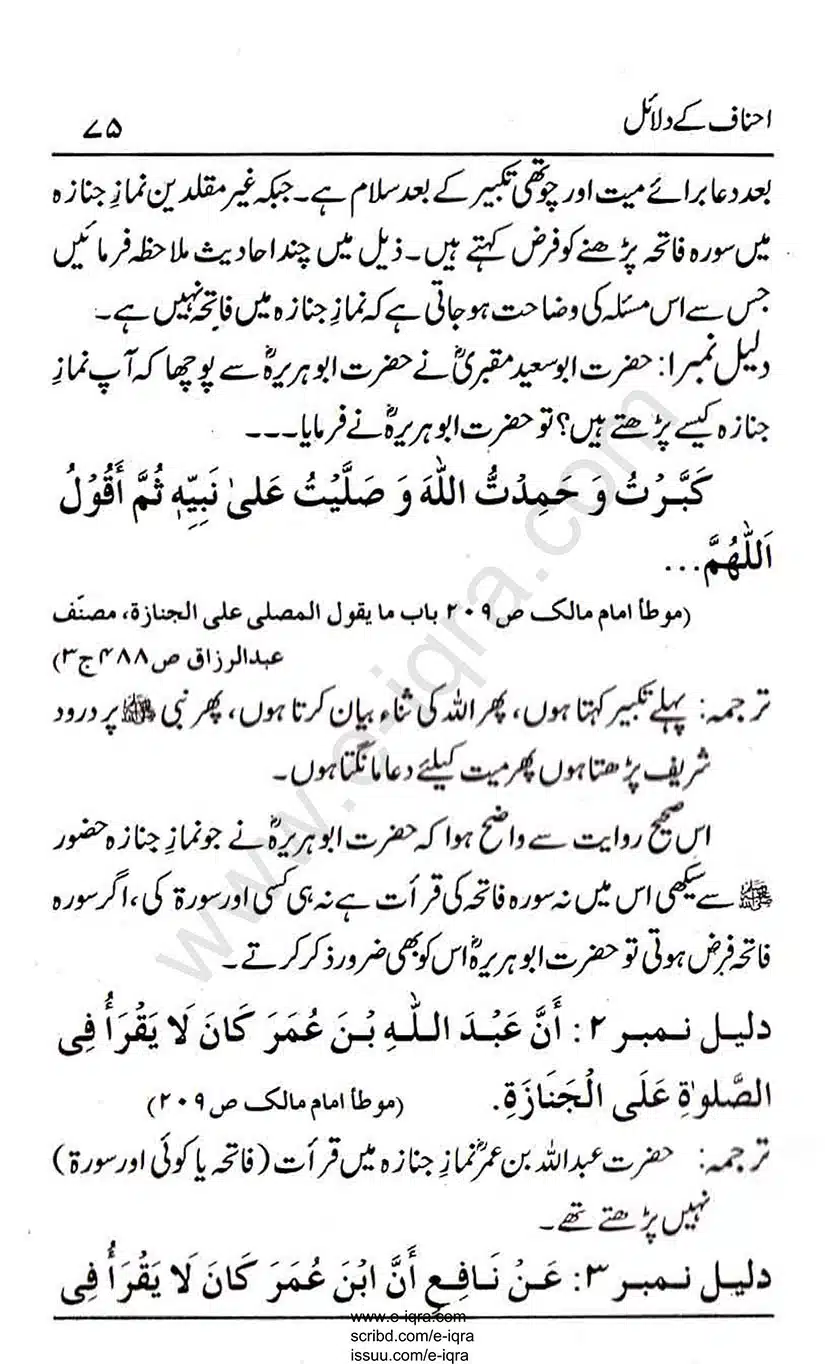 احناف کے دلائل
۷۵
بعد دعا برائے میت اور چوتھی تکبیر کے بعد سلام ہے۔ جبکہ غیر مقلدین نمازِ جنازہ
میں سورہ فاتحہ پڑھنے کو فرض کہتے ہیں۔ ذیل میں چند احادیث ملاحظہ فرمائیں
جس سے اس مسئلہ کی وضاحت ہو جاتی ہے کہ نمازِ جنازہ میں فاتحہ نہیں ہے۔
دلیل نمبر ۱: حضرت ابوسعید مقبریؒ نے حضرت ابو ہریرہؓ سے پوچھا کہ آپ نمازِ
جنازہ کیسے پڑھتے ہیں؟ تو حضرت ابو ہریرہؓ نے فرمایا۔۔۔
كَبَّرْتُ وَ حَمِدْتُّ اللهَ وَ صَلَّيْتُ عَلىٰ نَبِيِّهٖ ثُمَّ أَقُوْلُ
اَللّٰهُمَّ...
(موطأ امام مالک ص ۲۰۹ باب ما يقول المصلى على الجنازة، مصنّف
عبدالرزاق ص ۴۸۸ ج ۳)
ترجمہ: پہلے تکبیر کہتا ہوں، پھر اللہ کی ثناء بیان کرتا ہوں، پھر نبی ﷺ پر درود
شریف پڑھتا ہوں پھر میت کیلئے دعا مانگتا ہوں۔
اس صحیح روایت سے واضح ہوا کہ حضرت ابو ہریرہؓ نے جو نمازِ جنازہ حضور
ﷺ سے سیکھی اس میں نہ سورہ فاتحہ کی قرأت ہے نہ ہی کسی اور سورۃ کی، اگر سورہ
فاتحہ فرض ہوتی تو حضرت ابو ہریرہؓ اس کو بھی ضرور ذکر کرتے۔
دلیل نمبر ۲: أَنَّ عَبْدَ اللهِ بْنَ عُمَرَ كَانَ لَا يَقْرَأُ فِى
الصَّلوٰةِ عَلَى الْجَنَازَةِ. (موطأ امام مالک ص ۲۰۹)
ترجمہ: حضرت عبداللہ بن عمرؓ نمازِ جنازہ میں قرأت (فاتحہ یا کوئی اور سورۃ)
نہیں پڑھتے تھے۔
دلیل نمبر ۳: عَنْ نَافِعٍ أَنَّ ابْنَ عُمَرَ كَانَ لَا يَقْرَأُ فِى
www.e-iqra.com
www.e-iqra.com
scribd.com/e-iqra
issuu.com/e-iqra